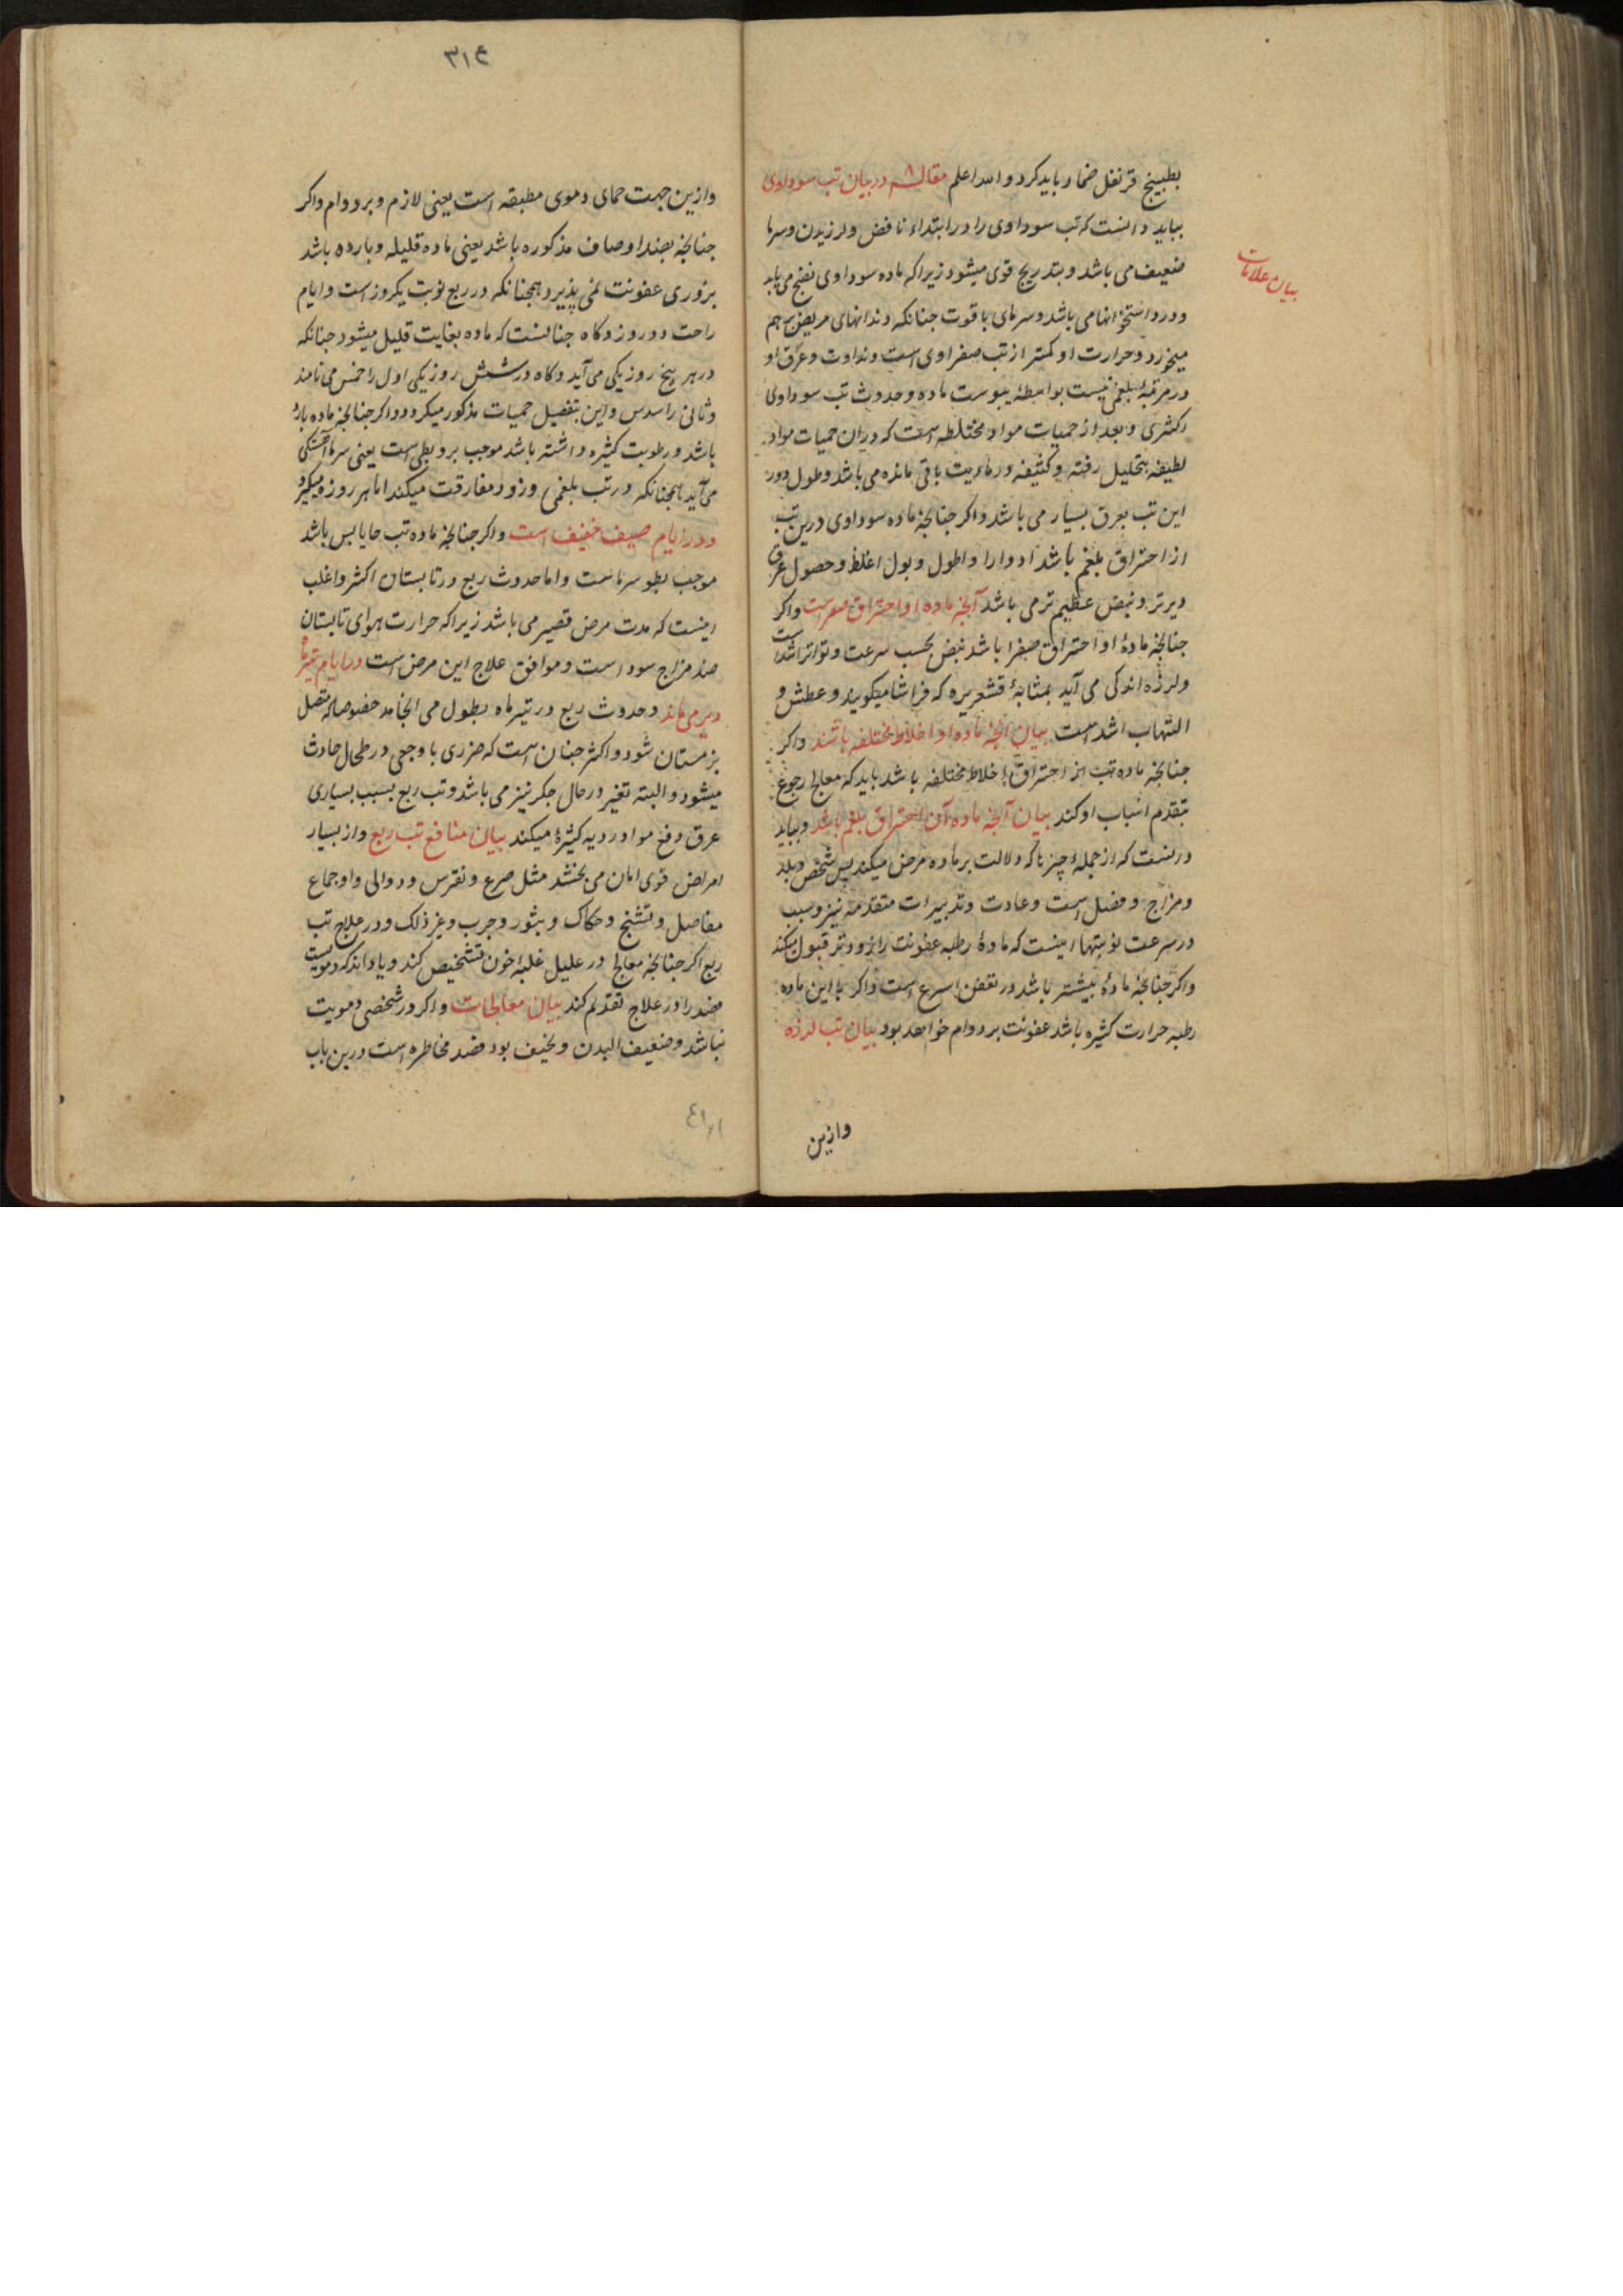 بطبیخ قرنفل ضماد باید کرد و الله اعلم مقاله ۸ در بیان تب سوداوی
بباید دانست که تب سوداوی را در ابتداء نافض و لرزیدن و سرما
ضعیف می باشد و بتدریج قوی میشود زیرا که ماده سوداوی نضج می یابد
بیان علامات
و درد استخوانها می باشد و سرمای با قوت جنانکه دندانهای مریض بر هم
میخورد و حرارت او کمتر از تب صفراوی است و نداوت و عرق او
در مرتبهٔ بلغمی نیست بواسطهٔ یبوست ماده و حدوث تب سوداوی
اکثری و بعد از حمیات مواد مختلطه است که در ان حمیات مواد
لطیفه بتحلیل رفته و کثیفه ورمادیت باقی مانده می باشد و طول دور
این تب بعرق بسیار می باشد و اکر جنانجه ماده سوداوی درین تب
از احتراق بلغم باشد ادوار او اطول و بول اغلظ و حصول عرق
دیرتر و نبض عظیم تر می باشد آنجه ماده او احتراق صفراست و اکر
جنانجه مادهٔ او احتراق صفرا باشد نبض بحسب سرعت و تواتر اشد است
و لرزه اندکی می آید بمثابهٔ قشعریره که فراشا میکویند و عطش و
التهاب اشد است بیان آنجه ماده او اخلاط مختلفه باشند و اکر
جنانجه ماده تب از احتراق اخلاط مختلفه باشد باید که معالج رجوع
بتقدم اسباب او کند بیان آنجه ماده آن احتراق بلغم باشد و بباید
دانست که از جملهٔ چیزها که دلالت بر ماده مرض میکند سن شخص و بلد
و مزاج و فصل است و عادت و تدبیرات متقدمه نیز و سبب
در سرعت نوبتها اینست که مادهٔ رطبه عفونت را زودتر قبول میکند
و اکر جنانجه مادهٔ بیشتر باشد در تعفن اسرع است و اکر با این ماده
رطبه حرارت کثیره باشد عفونت بر دوام خواهد بود بیان تب لرزه
وازین
۳۱۴
وازین جهت حمای دموی مطبقه است یعنی لازم و بر دوام و اکر
جنانجه بضد اوصاف مذکوره باشد یعنی ماده قلیله و بارده باشد
بزوری عفونت نمی پذیرد و همجنانکه در ربع نوبت یکروز است و ایام
راحت دو روز و کاه جنانست که ماده بغایت قلیل میشود جنانکه
در هر پنج روز یکی می آید و کاه در شش روز یکی اول را خمس می نامند
و ثانی را سدس و این بتفصیل حمیات مذکور میکردد و اکر جنانجه ماده بارد
باشد و رطوبت کثیره داشته باشد موجب برد بطی است یعنی سرما آهستکی
می آید همجنانکه در تب بلغمی و زود مفارقت میکند اما هر روزه میکیرد
و در ایام صیف خفیف است و اکر جنانجه ماده تب حار یابس باشد
موجب بطو سرماست و اما حدوث ربع در تابستان اکثر و اغلب
اینست که مدت مرض قصیر می باشد زیرا که حرارت هوای تابستان
ضد مزاج سودا است و موافق علاج این مرض است و در ایام تیر ماه
دیر می ماند و حدوث ربع در تیر ماه بطول می انجامد خصوصا که متصل
بزمستان شود و اکثر جنان است که ضرری با وجعی در طحال حادث
میشود و البته تغیر در حال جکر نیز می باشد و تب ربع بسبب بسیاری
عرق دفع مواد ردیه کثیرهٔ میکند بیان منافع تب ربع و از بسیار
امراض قوی امان می بخشد مثل صرع و نقرس و دوالی و اوجاع
مفاصل و تشنج و حکاک و بثور و جرب و غیر ذلک و در علاج تب
ربع اکر جنانجه معالج در علیل غلبهٔ خون تشخیص کند و یا داند که دمویست
فصد را در علاج تقدیم کند بیان معالجات و اکر در شخصی دمویت
نباشد و ضعیف البدن و نحیف بود فصد مخاطره است درین باب